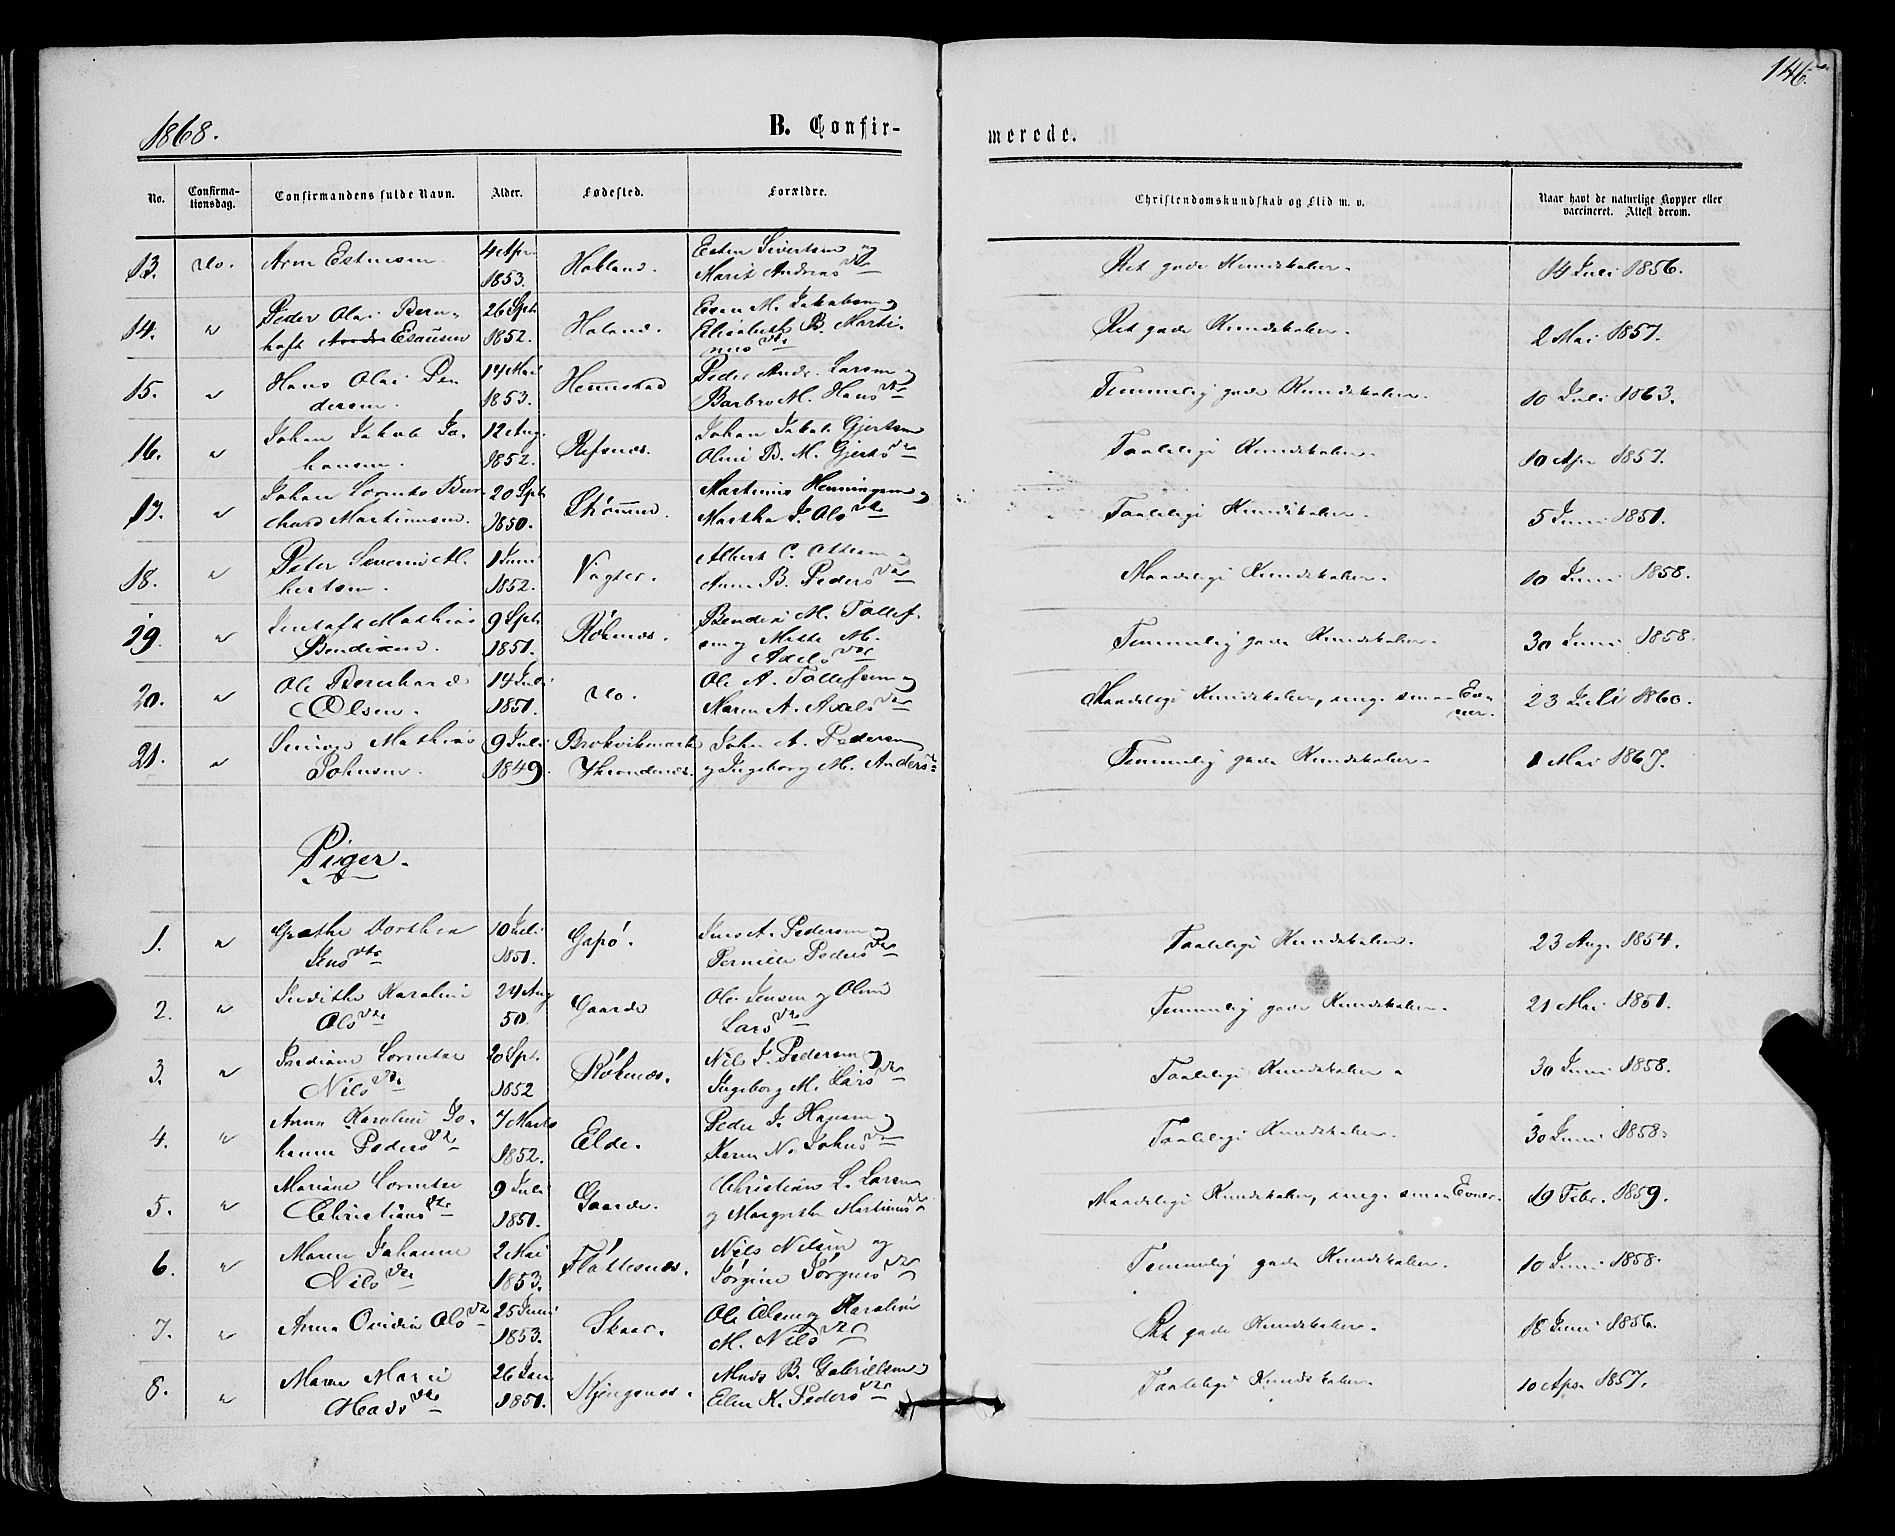 146.
1868.
B. Confir-
merede.
No.
Confirma-
tionsdag.
Confirmandens fulde Navn.
Alder.
Fødested.
Forældre.
Christendomskundskab og Flid m. v.
Naar havt de naturlige Kopper eller
vaccineret. Attest derom.
13. do. Arnt Estensen 4 Apr. 1853. Halland. Esten Sivertsen og
Marit Andreas Dtr
Ret gode Kundskaber. 14 Juli 1856.
14. " Peder Olai Bern-
hoft Esausen 26 Spt. 1852. Haland. Esau M. Jakobsen og
Elisabeth B. Marti-
nus Dtr
Ret gode Kundskaber. 2 Mai 1857.
15. " Hans Olai Pe-
dersen. 14 Mai 1853. Hemmestad Peder Andr. Larsen og
Barbro M. Hans Dtr
Temmelig gode Kundskaber. 10 Juli 1863.
16. " Johan Jakob Jo-
hansen. 12 Aug. 1852. Refsnes. Johan Jakob Gjertsen
Oline B. M. Gjerts Dtr
Taalelige Kundskaber. 10 Apr 1857.
17. " Johan Lorents
Martinusen. 20 Spt. 1850. Martinus Henningsen og
Martha J. Ols Dtr
Taalelige Kundskaber. 5 Juni 1851.
18. " Peter Severin Al-
bertsen. 1 Juni 1852. Albert C. Ottesen og
Anne B. Peders Dtr
Maadelige Kundskaber. 10 Juni 1858.
19. " Gustaf Mathias
Bendixen. 9 Spt. 1851. Røkenes. Bendix M. Tollef-
sen og Mette M.
Axels Dtr
Temmelig gode Kundskaber. 30 Juni 1858.
20. " Ole Bernhard
Olsen. 14 Juli 1851. do. Ole A. Tollefsen og
Maren A. Axels Dtr
Maadelige Kundskaber, unge smaa Ev-
ner. 23 Juli 1860.
21. " Simon Mathias
Johnsen. 9 Juli 1849. Brokvikmark
Throndenes. John A. Pedersen
og Ingeborg M. Anders Dtr
Temmelig gode Kundskaber. 1 Mai 1867.
Piger.
1. " Grethe Dorthea
Jens Dtr 10 Juli 1851. Gapø. Jens A. Pedersen og
Pernille Peders Dtr
Taalelige Kundskaber. 23 Aug. 1854.
2. " Karoline
Ols Dtr 24 Aug 50. Gaarde Ole Jensen og Oline
Lars Dtr
Temmelig gode Kundskaber. 21 Mai 1851.
3. " Lorentse
Nils Dtr 20 Spt. 1852 Røkenes. Nils J. Pedersen og
Ingeborg M. Lars Dtr
Taalelige Kundskaber. 30 Juni 1858.
4. " Anna Karoline Jo-
hanne Peders Dtr 7 Marts 1852. Elde. Peder J. Hansen og
Karen N. Johns Dtr
Taalelige Kundskaber. 30 Juni 1858.
5. " Mariane Lorentse
Christians Dtr 9 Juli 1851. Gaarde. Christian L. Larsen
og Margrethe Martinus Dtr
Maadelige Kundskaber, unge smaa Evner. 19 Febr. 1859.
6. " Maren Johanne
Nils Dtr 2 Mai 1853. Flattesnes. Nils Nilsen og
Jørgine Jørgens Dtr
Temmelig gode Kundskaber. 10 Juni 1858.
7. " Anna Ovidia Ols Dtr 25 Juni 1853. Skaar. Ole Olsen og Karoline
M. Nils Dtr
Ret gode Kundskaber. 18 Juni 1856.
8. " Maren Marie
Mads Dtr 26 Jan 1851. Kjengsnes. Mads B. Gabrielsen og
Elen K. Peders Dtr
Taalelige Kundskaber. 10 Apr. 1857.